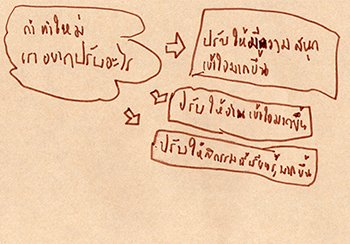 ถ้าทำใหม่
เราอยากปรับอะไร
ปรับให้มีความสนุก
เข้าใจมากขึ้น
ปรับให้ง่าย เข้าใจมากขึ้น
ปรับให้มีกิจกรรม เรียนรู้มากขึ้น